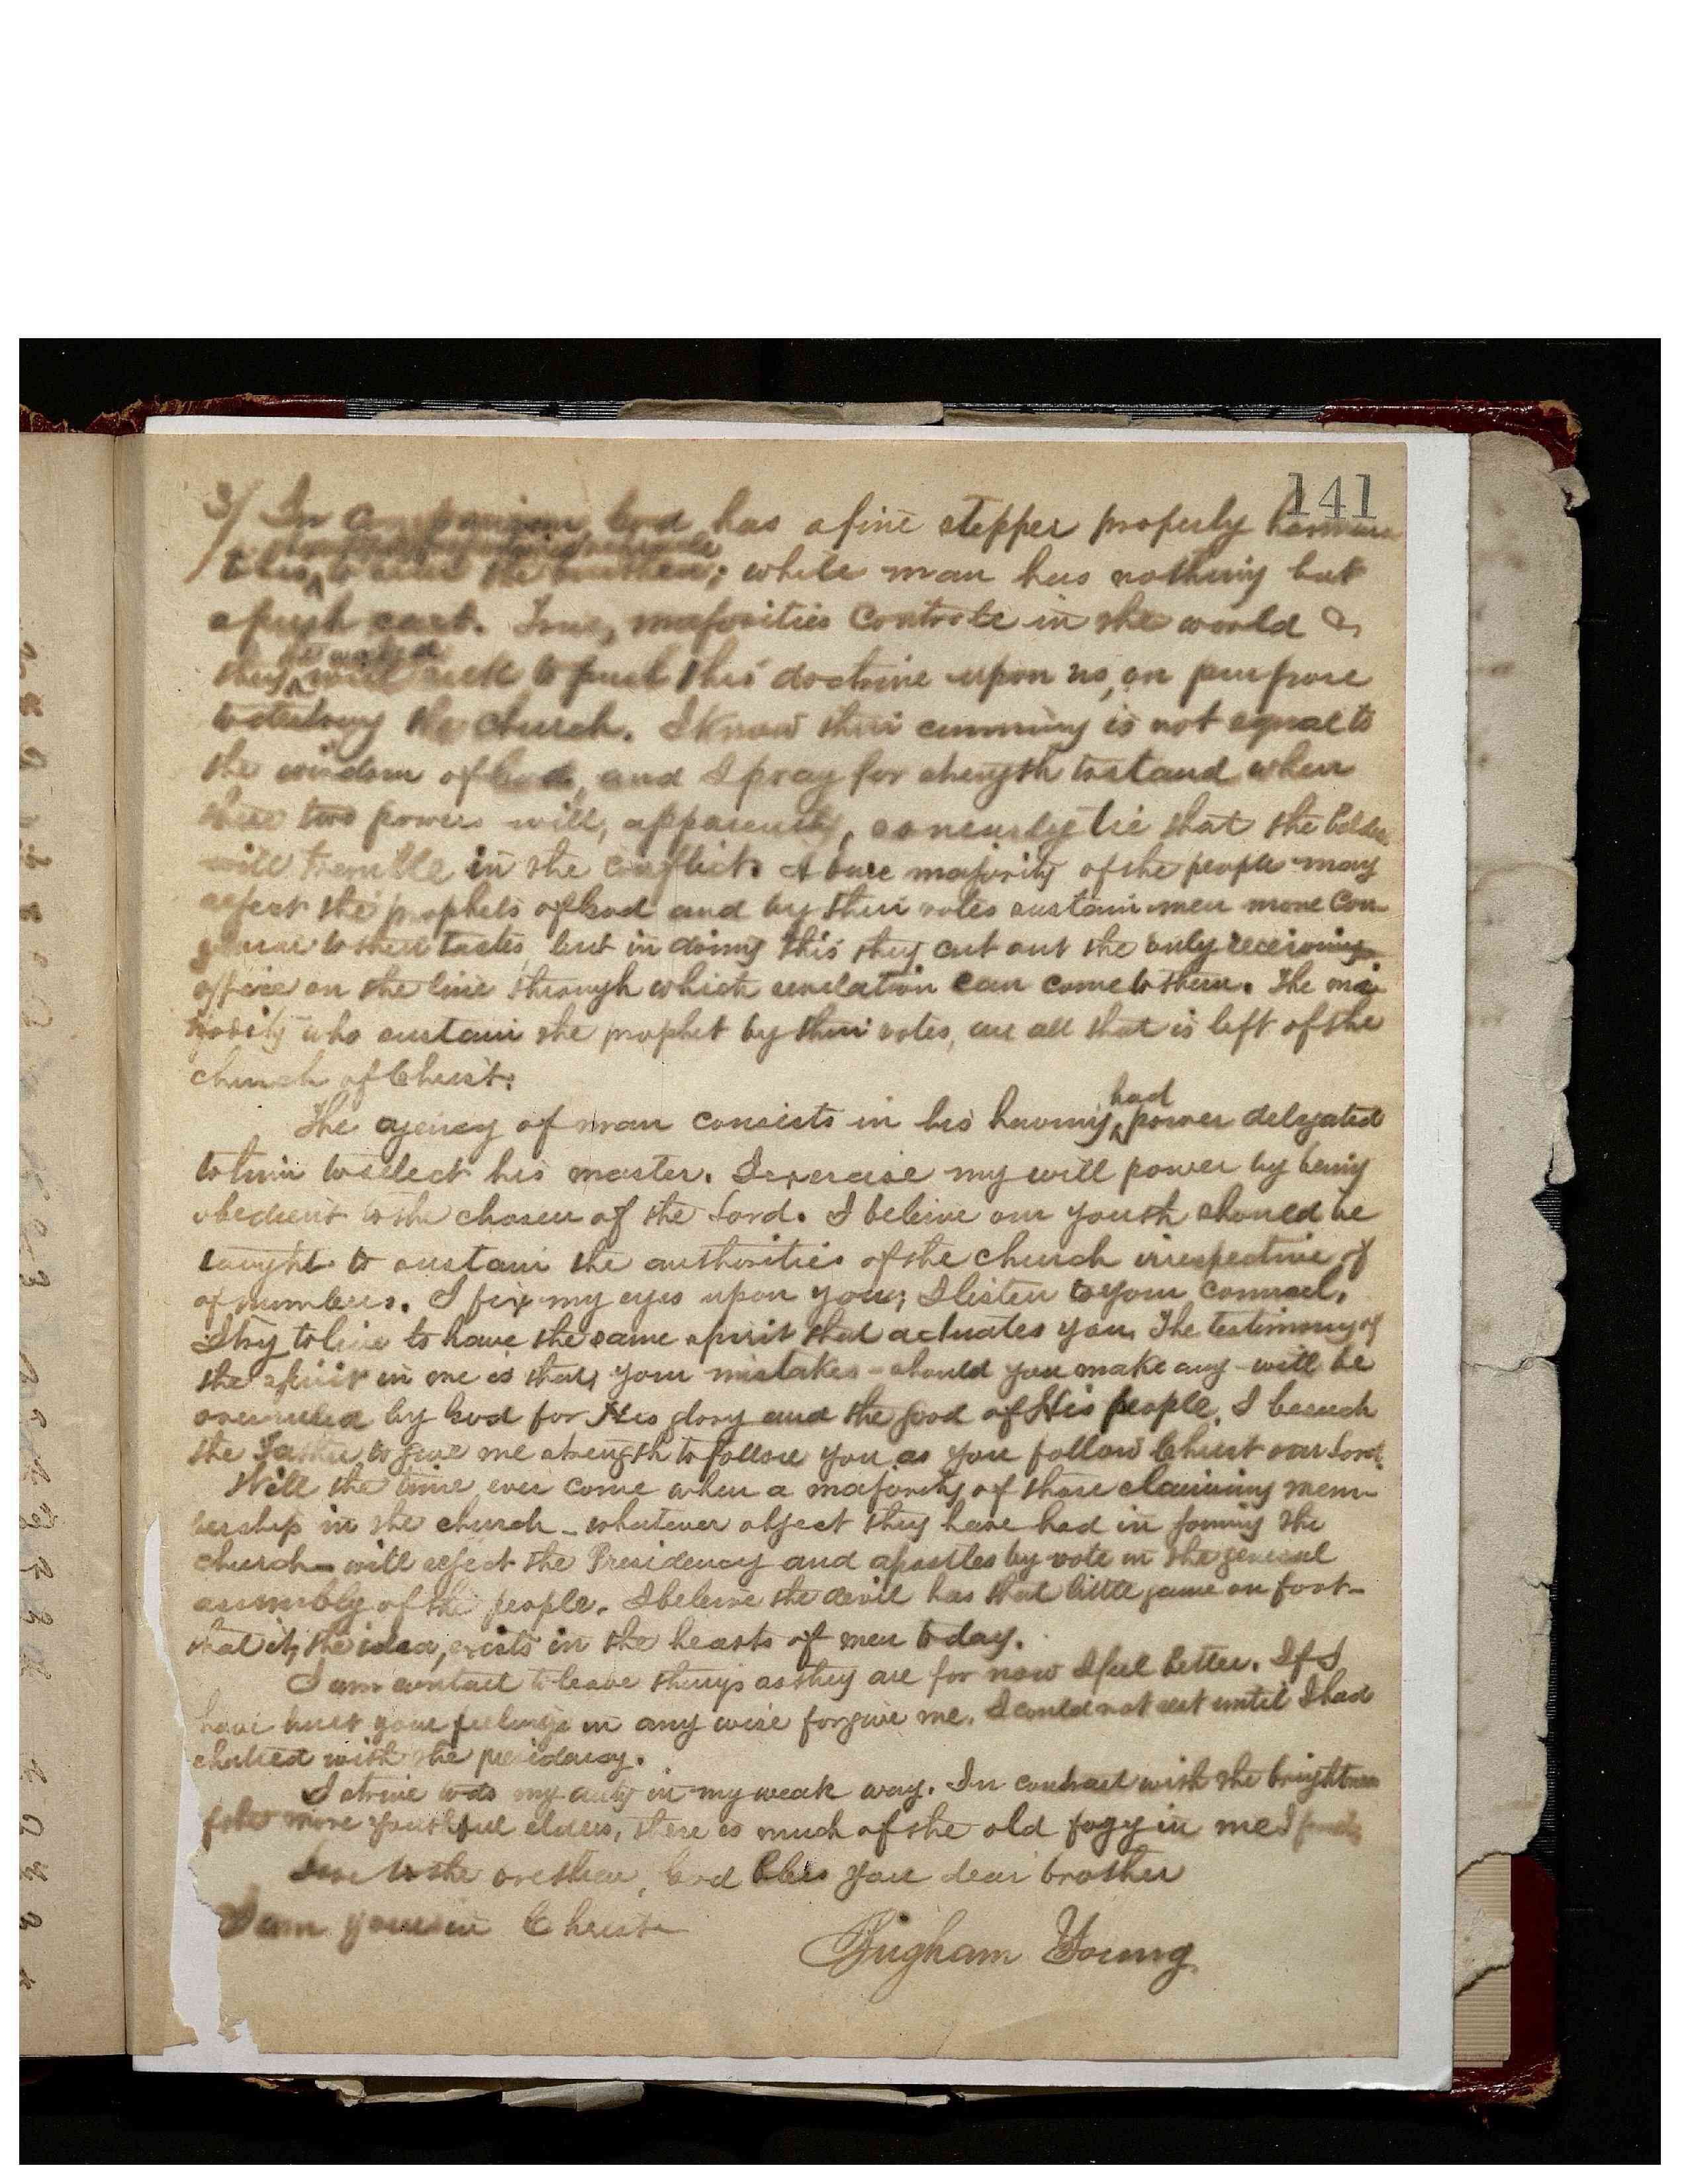 141
3/ In comparison, God has a fine stepper properly harness
to his to the brethren; while man has nothing but
a push cart. True, majorities controle in the world &
be wicked
they will seek to push this doctrine upon us, on purpose
to destroy the church. I know their cunning is not equal to
the wisdom of God, and I pray for strength to stand when
these two powers will, apparently, so nearly tie that the Elders
will tremble in the conflict. A bare majority of the people may
reject the prophets of God and by their votes sustain men more con-
genial to their tastes, but in doing this they cut out the only receiving
office on the line through which revelation can come to them. The mi-
nority who sustain the prophet by their votes, are all that is left of the
church of Christ.
had
The agency of man consists in his having power delegated
to him to select his master. I exercise my will power by being
obedient to the chosen of the Lord. I beleive our youth should be
taught to sustain the authorities of the church irrespective of
of numbers. I fix my eyes upon you; I listen to your counsel.
I try to live to have the same spirit that actuates you. The testimony of
the spirit in me is that, your mistakes - should you make any - will be
overruled by God for His glory and the good of His people. I beseech
the Father to give me strength to follow you as you follow Christ our Lord.
Will the time ever come when a majority of those claiming mem-
bership in the church - whatever object they have had in joining the
church - will reject the Presidency and apostles by vote in the general
assembly of the people. I beleive the devil has that little game on foot -
that is, the idea, exists in the hearts of men today.
I am content to leave things as they are for now I feel better. If I
have hurt your feelings in any wise forgive me. I could not rest until I had
chatted with the presidency.
I strive to do my duty in my weak way. In contrast with the brightness
of the more youthful elders, there is much of the old fogy in me I find.
Love to the brethren, God bless you dear brother
I am yours in Christ
Brigham Young